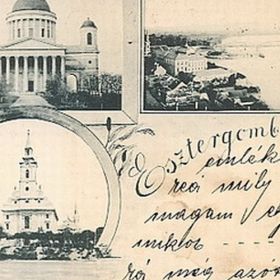 Esztergomb
emlék
reá mily
magam
miklos
rá még azo